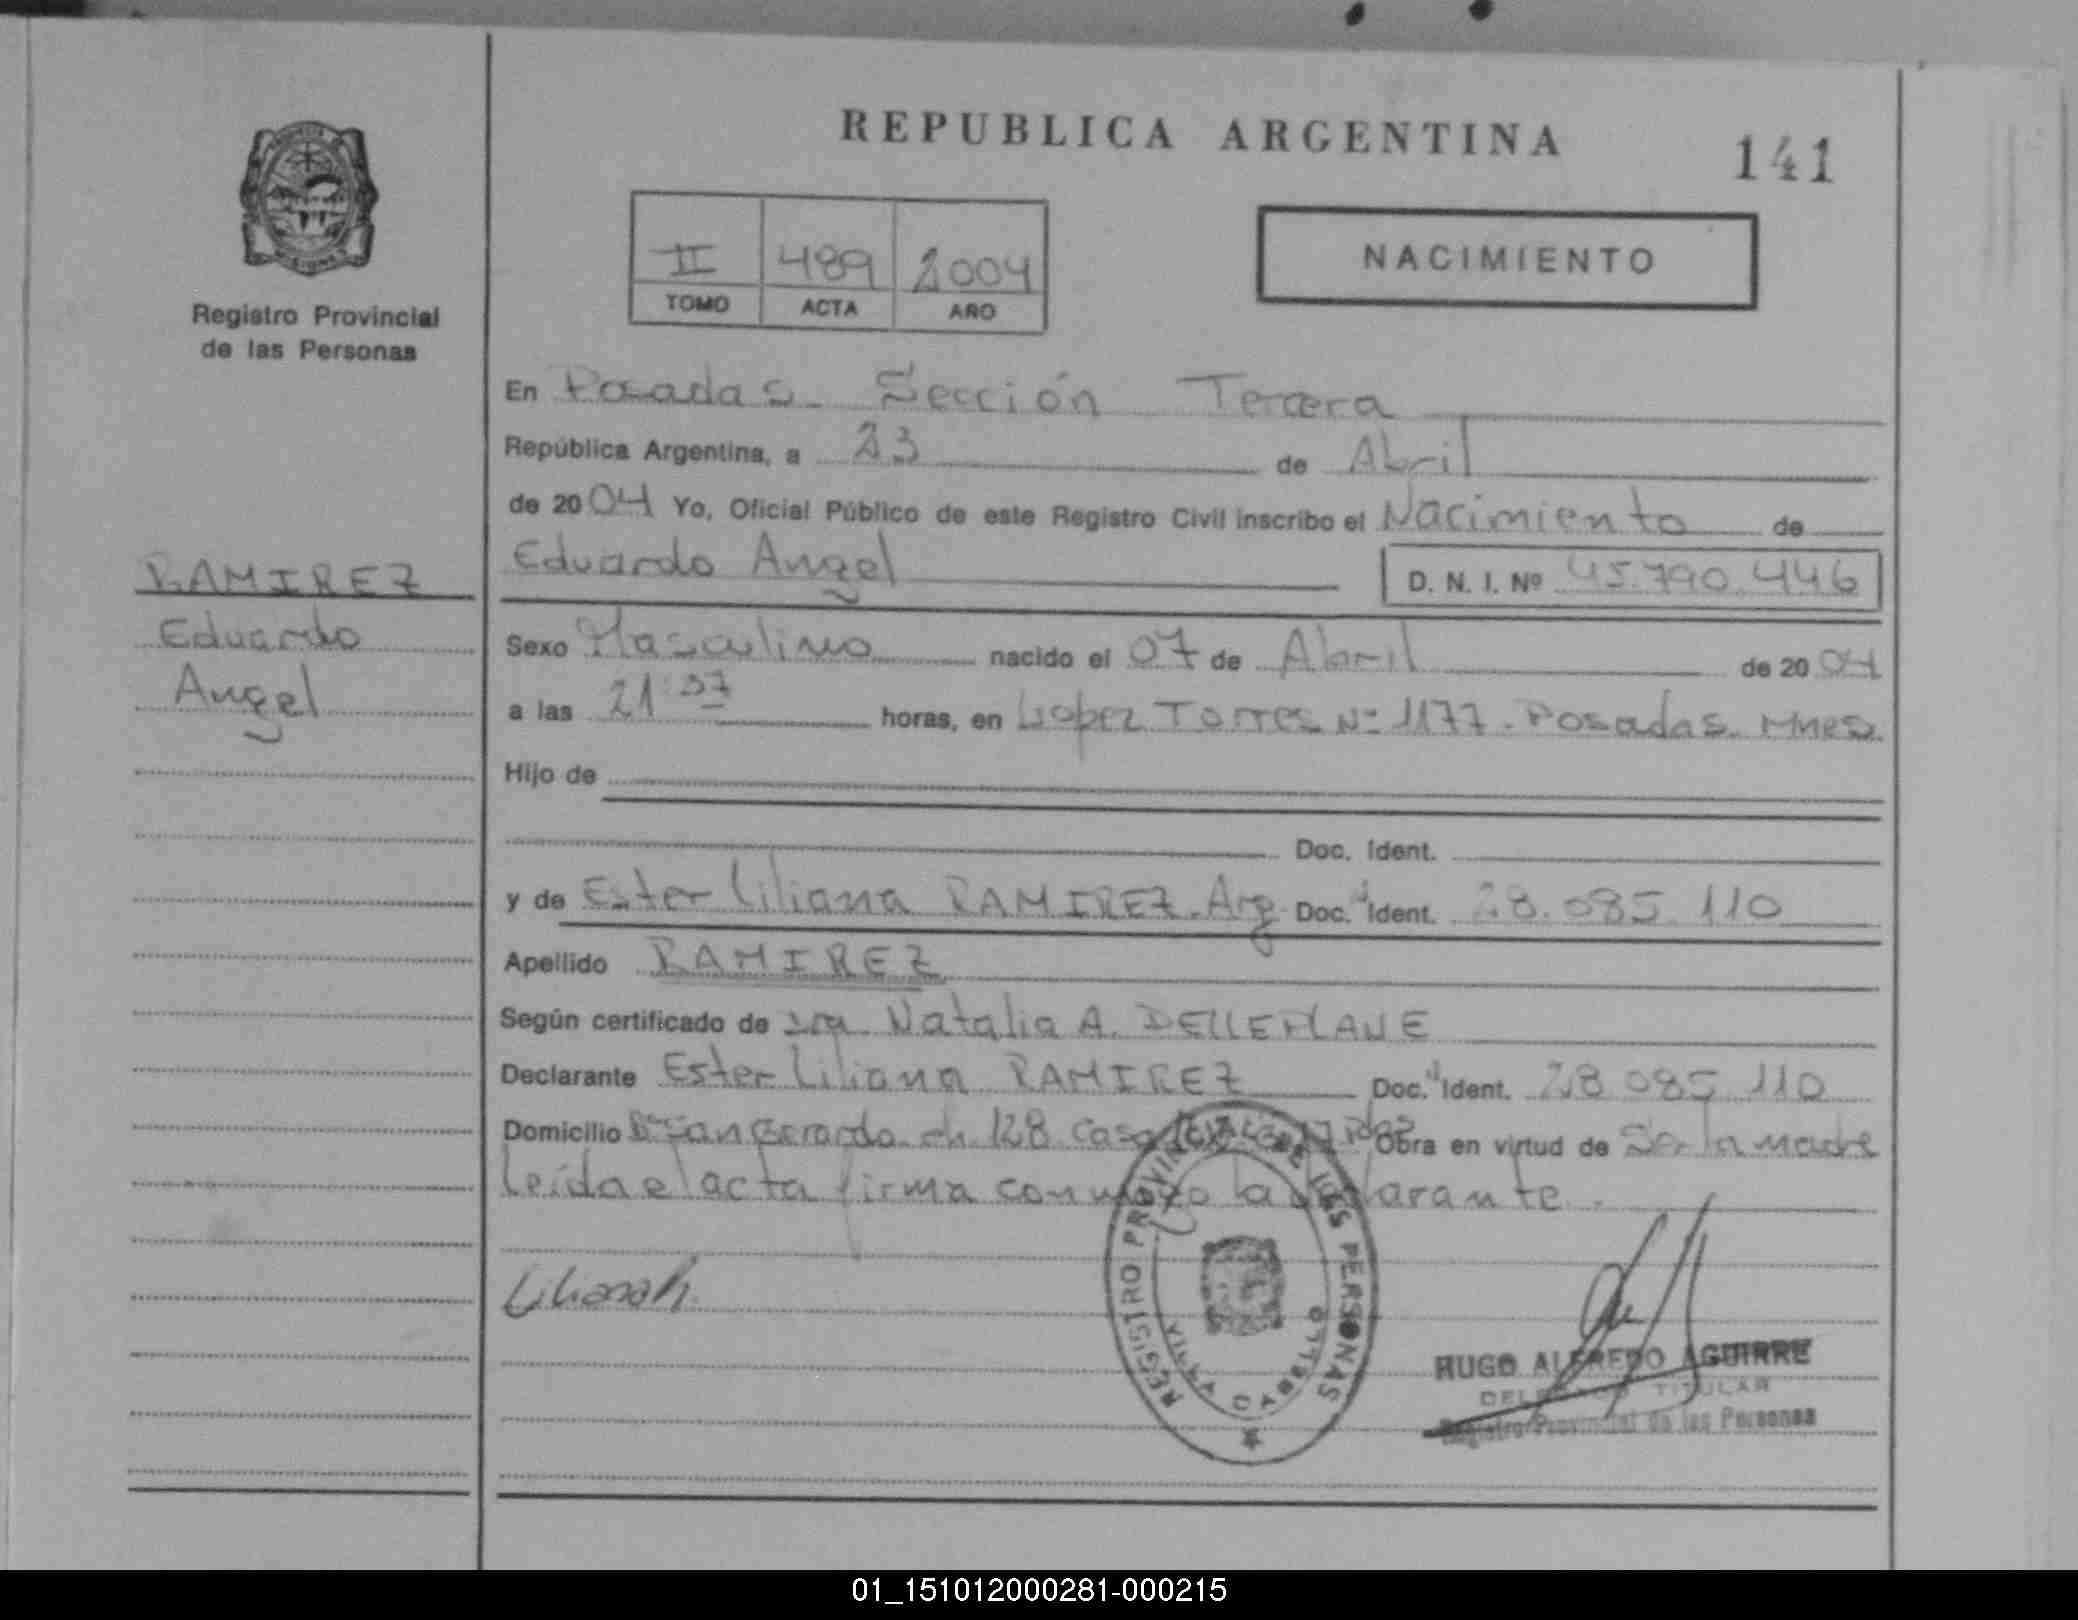 REPUBLICA ARGENTINA
141
II 489 2004
TOMO ACTA AÑO
NACIMIENTO
Registro Provincial
de las Personas
En Posadas Sección Tercera
República Argentina, a 23 de Abril
de 2004 Yo, Oficial Público de este Registro Civil inscribo el Nacimiento de
Eduardo Angel D. N. I. Nº 45.790.446
RAMIREZ
Eduardo
Angel
Sexo Masculino nacido el 07 de Abril de 2004
a las 21:37 horas, en Lopez Torres Nº 1177. Posadas. Mnes.
Hijo de
Doc. Ident.
y de Ester Liliana RAMIREZ. Arg. Doc. Ident. 28.085.110
Apellido RAMIREZ
Según certificado de Natalia A. DELLEPIANE
Declarante Ester Liliana RAMIREZ Doc. Ident. 28.085.110
Domicilio Bº San Gerardo ch 128 casa Obra en virtud de Ser la madre
Leída el acta firma conmigo la declarante.
Liliana R.
REGISTRO PROVINCIAL DE LAS PERSONAS
VILLA CABELLO
HUGO ALFREDO AGUIRRE
DELEGADO TITULAR
Registro Provincial de las Personas
01_151012000281-000215